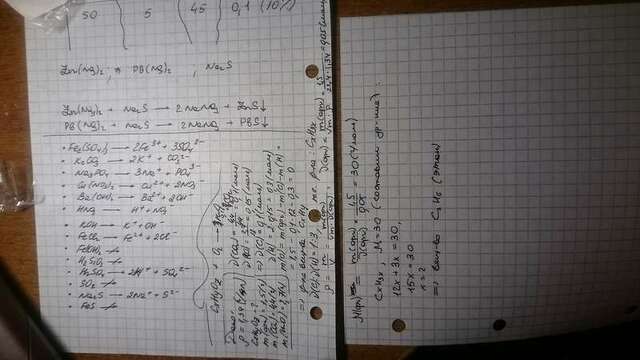 50 5 45 0,1
Zn(NO₃)₂ и Pb(NO₃)₂, Na₂S
Zn(NO₃)₂ + Na₂S → 2NaNO₃ + ZnS↓
Pb(NO₃)₂ + Na₂S → 2NaNO₃ + PbS↓
• Fe₂(SO₄)₃ → 2Fe³⁺ + 3SO₄²⁻
• K₂CO₃ → 2K⁺ + CO₃²⁻
• Na₃PO₄ → 3Na⁺ + PO₄³⁻
• Cu(NO₃)₂ → Cu²⁺ + 2NO₃⁻
• Ba(OH)₂ → Ba²⁺ + 2OH⁻
• HNO₃ → H⁺ + NO₃⁻
• KOH → K⁺ + OH⁻
• FeCl₂ → Fe²⁺ + 2Cl⁻
• H₂SO₄ → 2H⁺ + SO₄²⁻
• SO₂
• Na₂S → 2Na⁺ + S²⁻
• FeS
CxHyOz + O₂ →
Дано:
ρ = 1,34 (г/л)
CxHyOz - ?
m(орг) = 1,5 (г)
m(CO₂) = 4,4 (г)
m(H₂O) = 2,7 (г)
ν(CO₂) = 4,4/44 = 0,1 (моль)
ν(H₂O) = 2,7/18 = 0,15 (моль)
⇒ ν(C) = 0,1 (моль)
ν(H) = 2·0,15 = 0,3 (моль)
m(O) = m(орг) - m(C) - m(H) =
= 1,5 - 0,1·12 - 0,3 = 0
⇒ ф-ла вещ-ва CxHy
ν(C):ν(H) = 1:3, т.е. ф-ла: CxH3x
ρ = m/V = m(орг)/Vm·ν(орг) ν(орг) = m(орг)/Vm·ρ = 1,5/22,4·1,34 = 0,05 (моль)
M(орг) = m(орг)/ν(орг) = 1,5/0,05 = 30 (г/моль)
CxH3x, M=30 (составим ур-ние):
12x + 3x = 30,
15x = 30
x = 2
⇒ вещ-во C₂H₆ (этан)